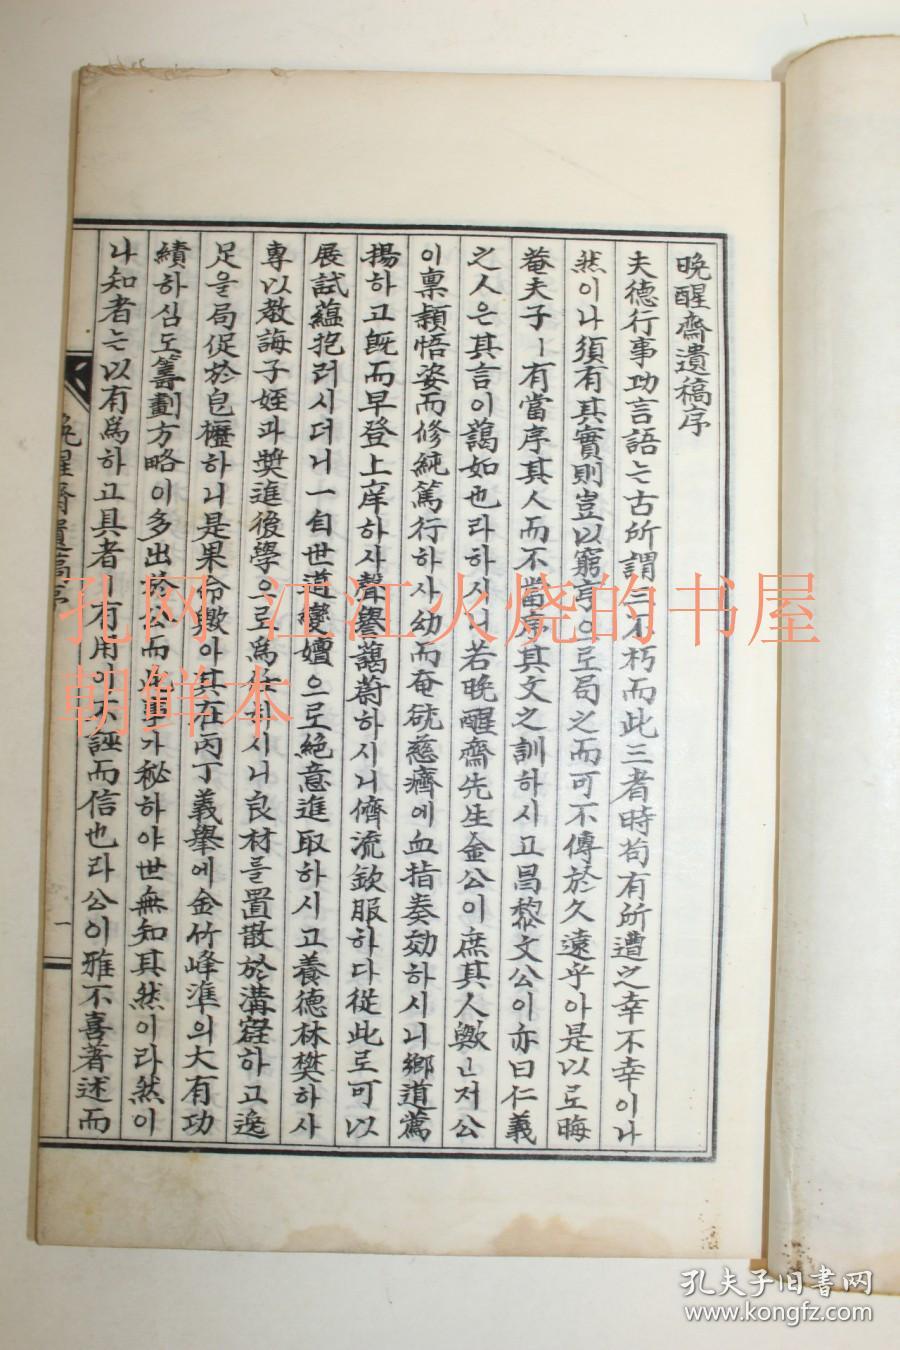 晩醒齋遺稿序
夫德行事功言語는古所謂三不朽而此三者時苟有所遭之幸不幸이나
然이나須有其實則豈以窮亨으로局之而可不傳於久遠乎아是以로晦
菴夫子ㅣ有當序其人而不當序其文之訓하시고昌黎文公이亦曰仁義
之人은其言이藹如也라하시니若晩醒齋先生金公이庶其人歟ㄴ저公
이稟穎悟姿而修純篤行하사幼而奄 慈癠에血指奏効하시니鄕道薦
揚하고旣而早登上庠하사聲譽藹蔚하시니儕流欽服하다從此로可以
展試蘊抱러시더니一自世道變嬗으로絶意進取하시고養德林樊하사
專以敎誨子姪과奬進後學으로爲 하시니良材를置散於溝 하고逸
足을局促於皀櫪하니是果命歟아其在丙丁義擧에金竹峰準의大有功
績하심도籌劃方略이多出於公而此事가秘하야世無知其然이라然이
나知者는以有爲하고具者ㅣ有用이不誣而信也라公이雅不喜著述而
晩醒齋遺稿序
一
孔网 江江火烧的书屋
朝鲜本
孔夫子旧书网
www.kongfz.com